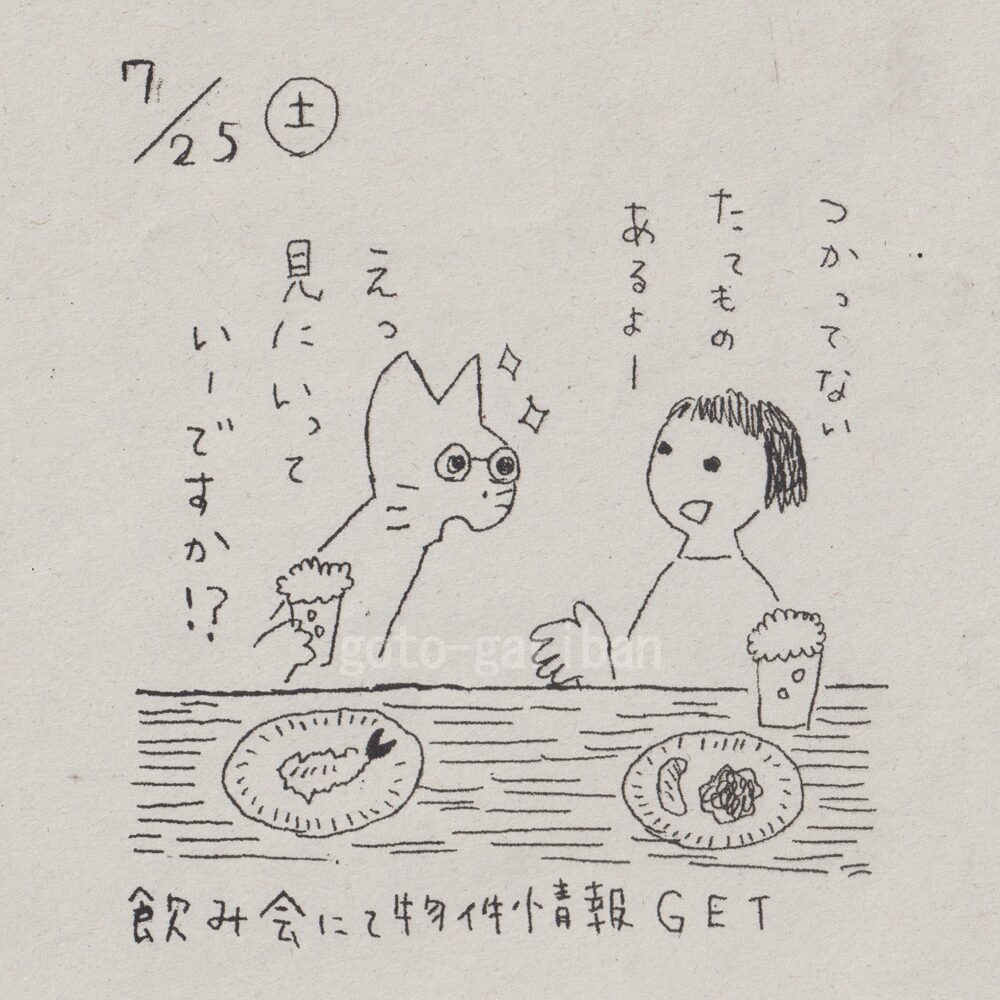 7/25 土
つかってない
たてもの
あるよー
えっ
見にいって
いーですか!?
goto-gariban
飲み会にて物件情報GET